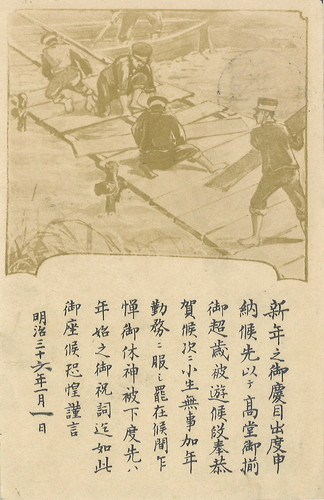 新年之御慶目出度申
納候先以テ高堂御揃
御超歳被遊候段奉恭
賀候次ニ小生無事加年
勤務ニ服シ罷在候間乍
憚御休神被下度先ハ
年始之御祝詞迄如此
御座候恐惶謹言
明治三十六年一月一日